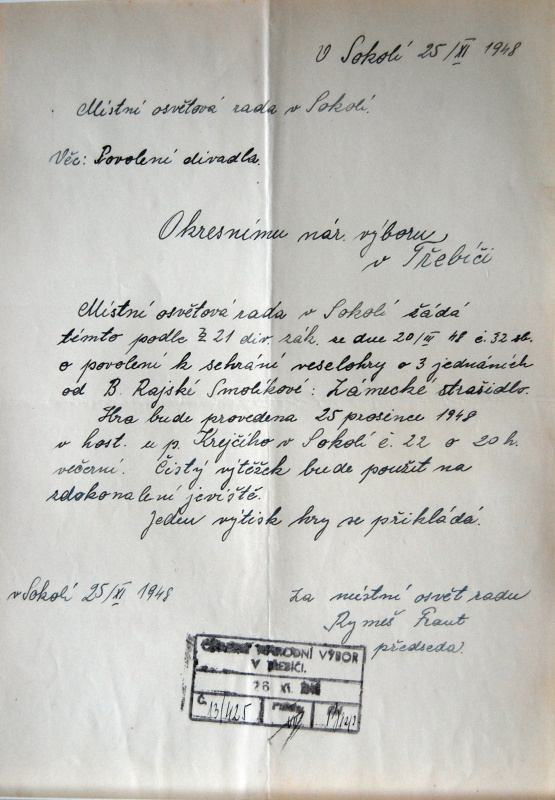 V Sokolí 25/XI 1948
Místní osvětová rada v Sokolí.
Věc: Povolení divadla.
Okresnímu nár. výboru
v Třebíči
Místní osvětová rada v Sokolí žádá
tímto podle § 21 div. zák. ze dne 20/III 48 č. 32 sb.
o povolení k sehrání veselohry o 3 jednáních
od B. Rajské Smolíkové: Zámecké strašidlo.
Hra bude provedena 25 prosince 1948
v host. u p. Krejčího v Sokolí č. 22 o 20 h.
večerní. Čistý výtěžek bude použit na
zdokonalení jeviště.
Jeden výtisk hry se přikládá.
v Sokolí 25/XI 1948
za místní osvět radu
Rymeš Frant
předseda.
OKRESNÍ NÁRODNÍ VÝBOR
V TŘEBÍČI.
26 XI. 1948
Č. 13/425